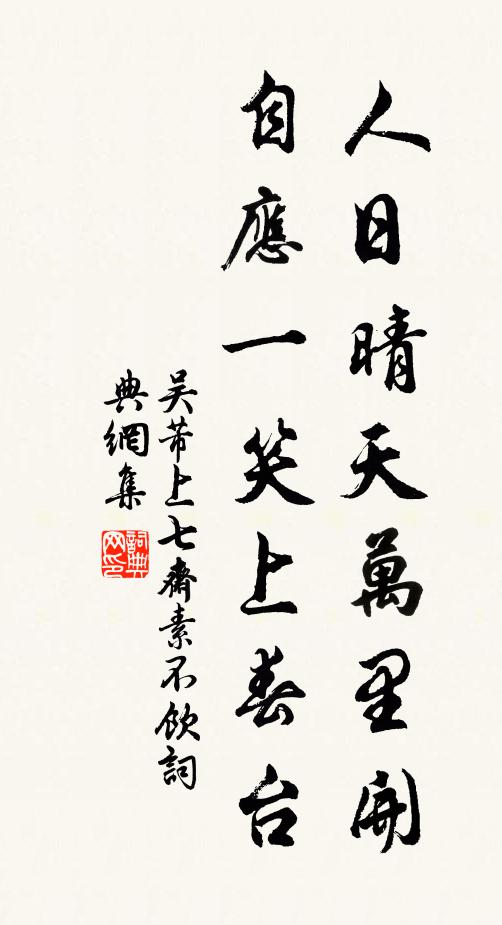 人日晴天萬里開
自應一笑上春台
吴芾上七齋素不飲詞
典網集
詞典网印